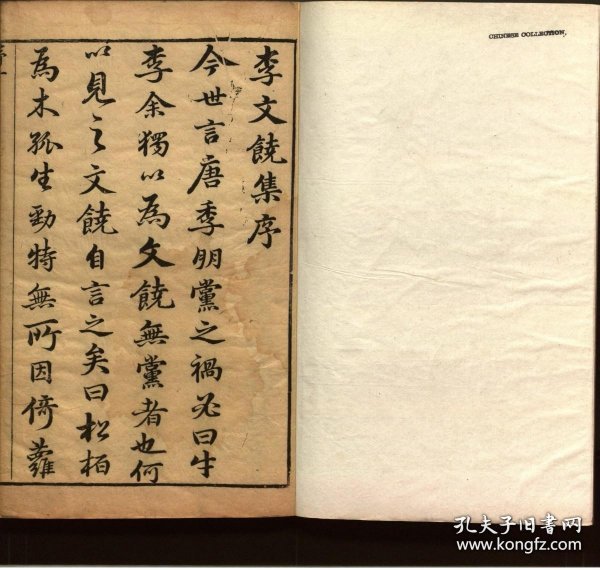 CHINESE COLLECTION,
李文饒集序
今世言唐季朋黨之禍必曰牛
李余獨以為文饒無黨者也何
以見之文饒自言之矣曰松柏
為木孤生勁特無所因倚蘿
孔夫子旧书网
www.kongfz.com